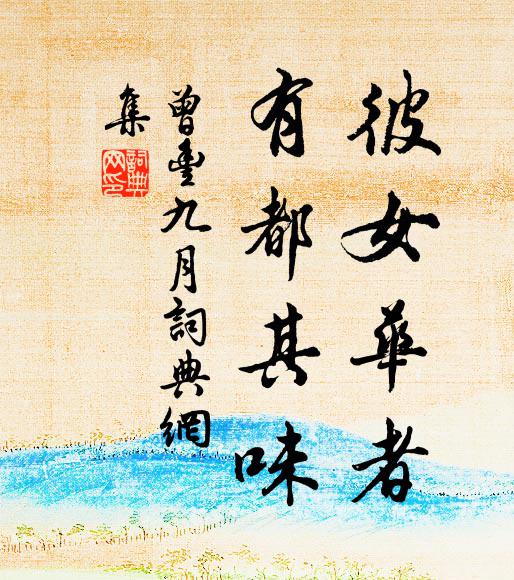 彼女華者
有都其味
曾豐九月詞典網
集
詞典網印